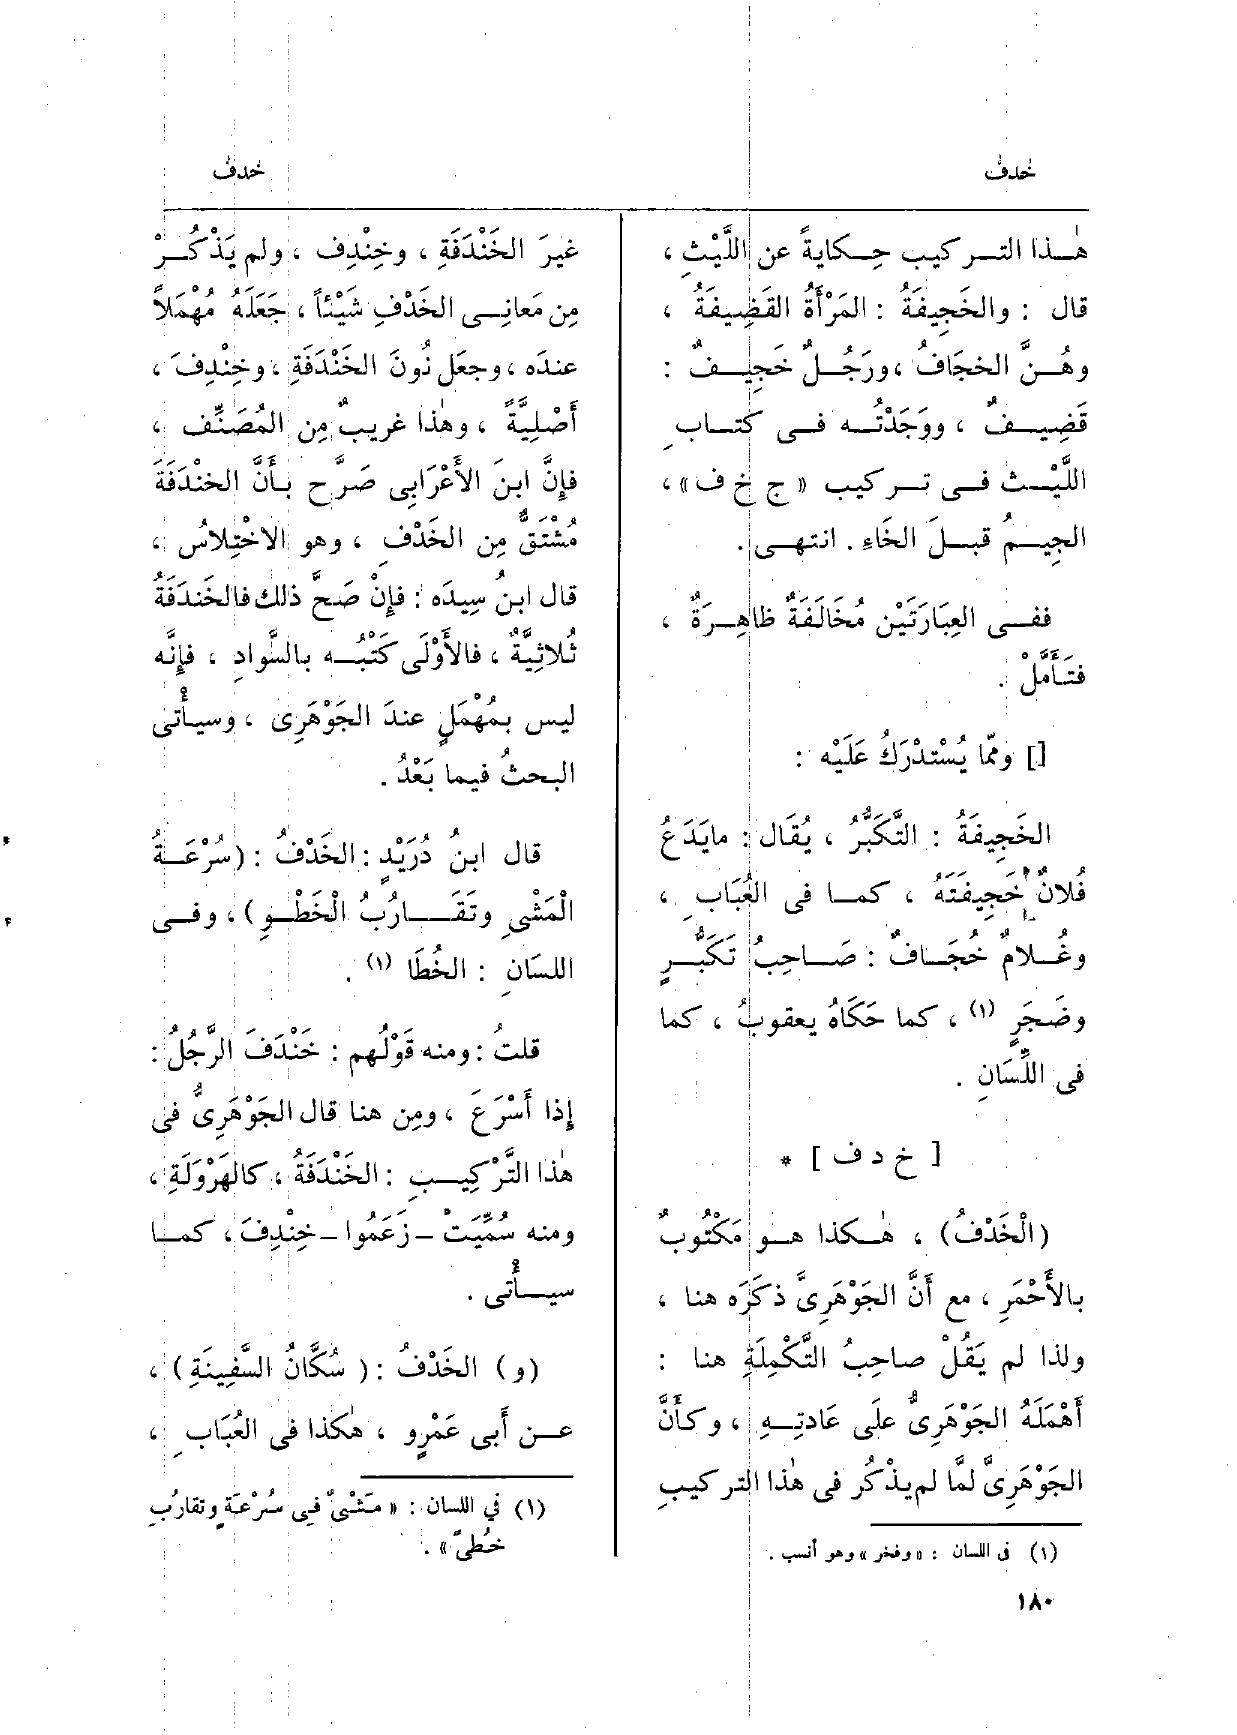 خدف
خدف
هٰذا التركيب حِكايةً عن اللَّيْثِ ،
قال : والخَجِيفَةُ : المَرْأَةُ القَضِيفَةُ ،
وهُنَّ الخجَافُ ، ورَجُلٌ خَجِيفٌ :
قَضِيفٌ ، ووَجَدْتُه فى كتابِ
اللَّيْث فى تركيب « ج خ ف » ،
الجِيمُ قبلَ الخَاءِ . انتهى .
ففى العِبَارَتَيْن مُخَالَفَةٌ ظاهِرَةٌ ،
فتَأَمَّلْ .
[] وممّا يُسْتدْرَكُ عَلَيْه :
الخَجِيفَةُ : التَّكَبُّرُ ، يُقَال : مايَدَعُ
فُلانٌ خَجِيفَتَهُ ، كما فى العُبَابِ ،
وغُلامٌ خُجَافٌ : صَاحِبُ تَكَبُّرٍ
وضَجَرٍ (١) ، كما حَكَاهُ يعقوبُ ، كما
فى اللِّسَانِ .
[ خ د ف ] *
(الْخَدْفُ) ، هٰكذا هو مَكْتُوبٌ
بالأَحْمَرِ ، مع أَنَّ الجَوْهَرِىَّ ذكَرَه هنا ،
ولذا لم يَقُلْ صاحِبُ التَّكْمِلَةِ هنا :
أَهْمَلَهُ الجَوْهَرِىُّ علَى عَادتِهِ ، وكأَنَّ
الجَوْهَرِىَّ لمَّا لم يذْكُر فى هٰذا التركيبِ
(١) فى اللسان : « وفخر » وهو أنسب .
غيرَ الخَنْدَفَةِ ، وخِنْدِف ، ولم يَذْكُرْ
مِن مَعانِى الخَدْفِ شَيْئاً ، جَعَلَهُ مُهْمَلاً
عندَه ، وجعَل نُونَ الخَنْدَفَةِ ، وخِنْدِفَ ،
أَصْلِيَّةً ، وهٰذا غريبٌ مِن المُصَنِّف ،
فإِنَّ ابنَ الأَعْرَابِى صَرَّح بأَنَّ الخنْدَفَةَ
مُشْتَقٌّ مِن الخَدْفِ ، وهو الاخْتِلاسُ ،
قال ابنُ سِيدَه : فإِنْ صَحَّ ذلك فالخَندَفَةُ
ثُلاثِيَّةٌ ، فالأَوْلَى كَتْبُه بالسَّوادِ ، فإِنَّه
ليس بمُهْمَلٍ عندَ الجَوْهَرِى ، وسيأْتى
البحثُ فيما بَعْدُ .
قال ابنُ دُرَيْدٍ : الخَدْفُ : (سُرْعَةُ
الْمَشْىِ وتَقَارُبُ الْخَطْوِ) ، وفى
اللسَانِ : الخُطَا (١) .
قلتُ : ومنه قَوْلُهم : خَنْدَفَ الرَّجُلُ :
إِذا أَسْرَعَ ، ومِن هنا قال الجَوْهَرِىُّ فى
هٰذا التَّرْكِيبِ : الخَنْدَفَةُ ، كالهَرْوَلَةِ ،
ومنه سُمِّيَتْ – زَعَمُوا – خِنْدِفَ ، كما
سيأْتى .
(و) الخَدْفُ : ( سُكَّانُ السَّفِينَةِ ) ،
عن أَبى عَمْرٍو ، هٰكذا فى العُبَابِ ،
(١) في اللسان : « مَشْىٌ فى سُرْعَة وتقارُبِ
خُطىً » .
١٨٠